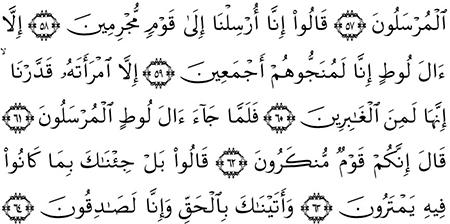 ٱلْمُرْسَلُونَ ﴿٥٧﴾ قَالُوٓا۟ إِنَّآ أُرْسِلْنَآ إِلَىٰ قَوْمٍ مُّجْرِمِينَ ﴿٥٨﴾ إِلَّآ
ءَالَ لُوطٍ إِنَّا لَمُنَجُّوهُمْ أَجْمَعِينَ ﴿٥٩﴾ إِلَّا ٱمْرَأَتَهُۥ قَدَّرْنَآ ۙ
إِنَّهَا لَمِنَ ٱلْغَٰبِرِينَ ﴿٦٠﴾ فَلَمَّا جَآءَ ءَالَ لُوطٍ ٱلْمُرْسَلُونَ ﴿٦١﴾
قَالَ إِنَّكُمْ قَوْمٌ مُّنكَرُونَ ﴿٦٢﴾ قَالُوا۟ بَلْ جِئْنَٰكَ بِمَا كَانُوا۟
فِيهِ يَمْتَرُونَ ﴿٦٣﴾ وَأَتَيْنَٰكَ بِٱلْحَقِّ وَإِنَّا لَصَٰدِقُونَ ﴿٦٤﴾